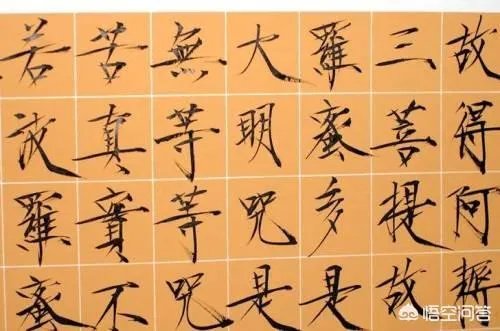 故得阿耨
三菩提故
羅蜜多是
大明咒是
無等等咒
苦真實不
若波羅蜜
悟空问答